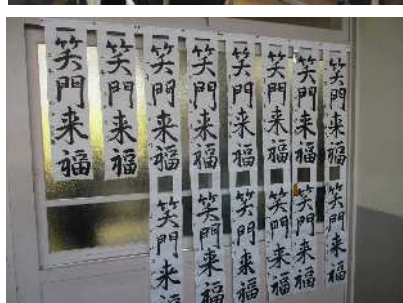 笑門来福
笑門来福
笑門来福
笑門来福
笑門来福
笑門来福
笑門来福
笑門来福
笑門来福
笑門来福
笑門来福
笑門来福
笑門来福
笑門来福